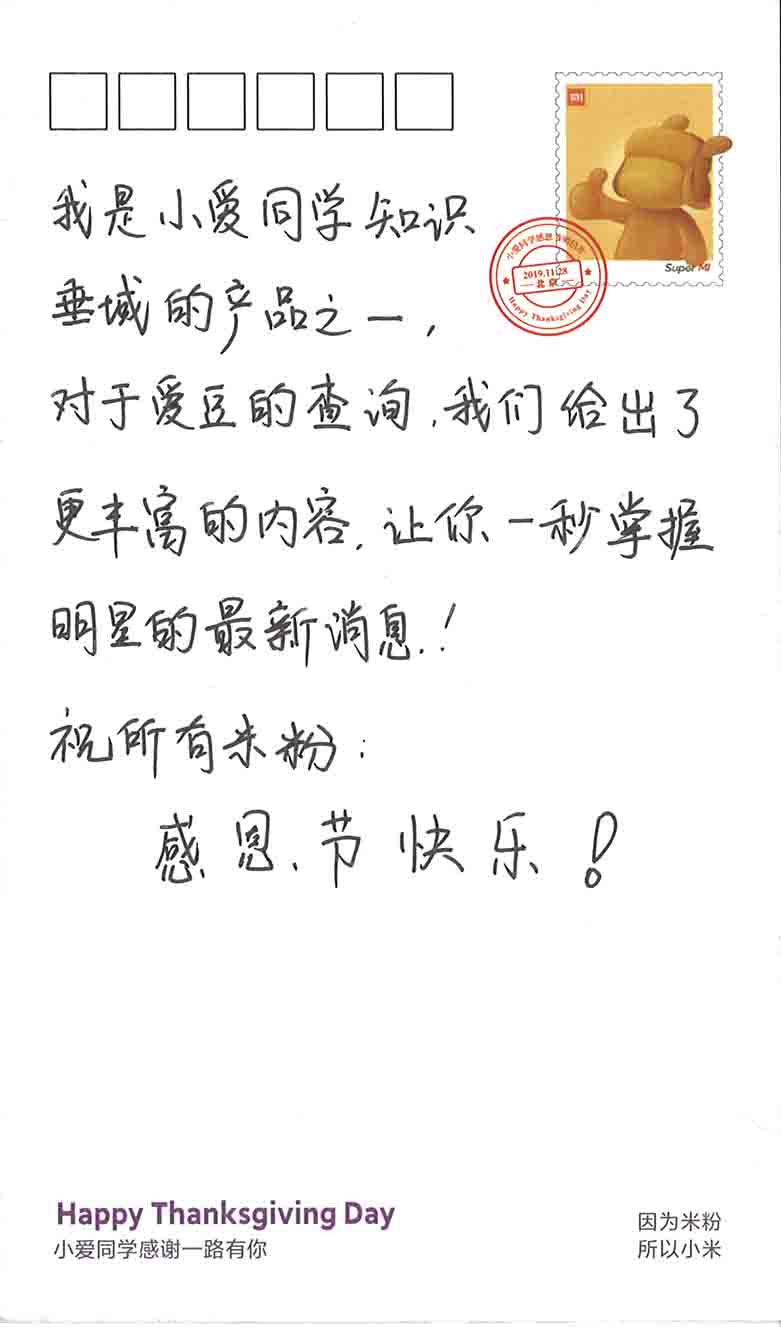 MI
Super MI
小爱同学感恩节明信片
2019.11.28
北京
Happy Thanksgiving Day
我是小爱同学知识
垂域的产品之一,
对于爱豆的查询,我们给出了
更丰富的内容,让你一秒掌握
明星的最新消息!
祝所有米粉:
感恩节快乐!
Happy Thanksgiving Day
小爱同学感谢一路有你
因为米粉
所以小米